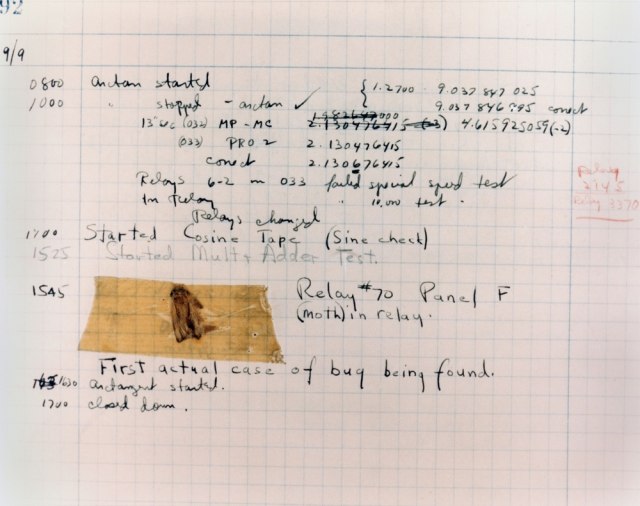 92
9/9
0800 arctan started { 1.2700 9.037 847 025
1000 " stopped - arctan ✓ 9.037 846 795 correct
13"sec (032) MP - MC 2.130476415 4.615925059(-2)
(033) PRO 2 2.130476415
correct 2.130676415
Relays 6-2 in 033 failed special speed test
In Relay " 10,000 test.
Relay 3145
Relay 3370
Relays changed
Started Cosine Tape (Sine check)
1525 Started Mult+Adder Test.
1545 Relay #70 Panel F
(moth) in relay.
First actual case of bug being found.
1630 arctangent started.
1700 closed down.